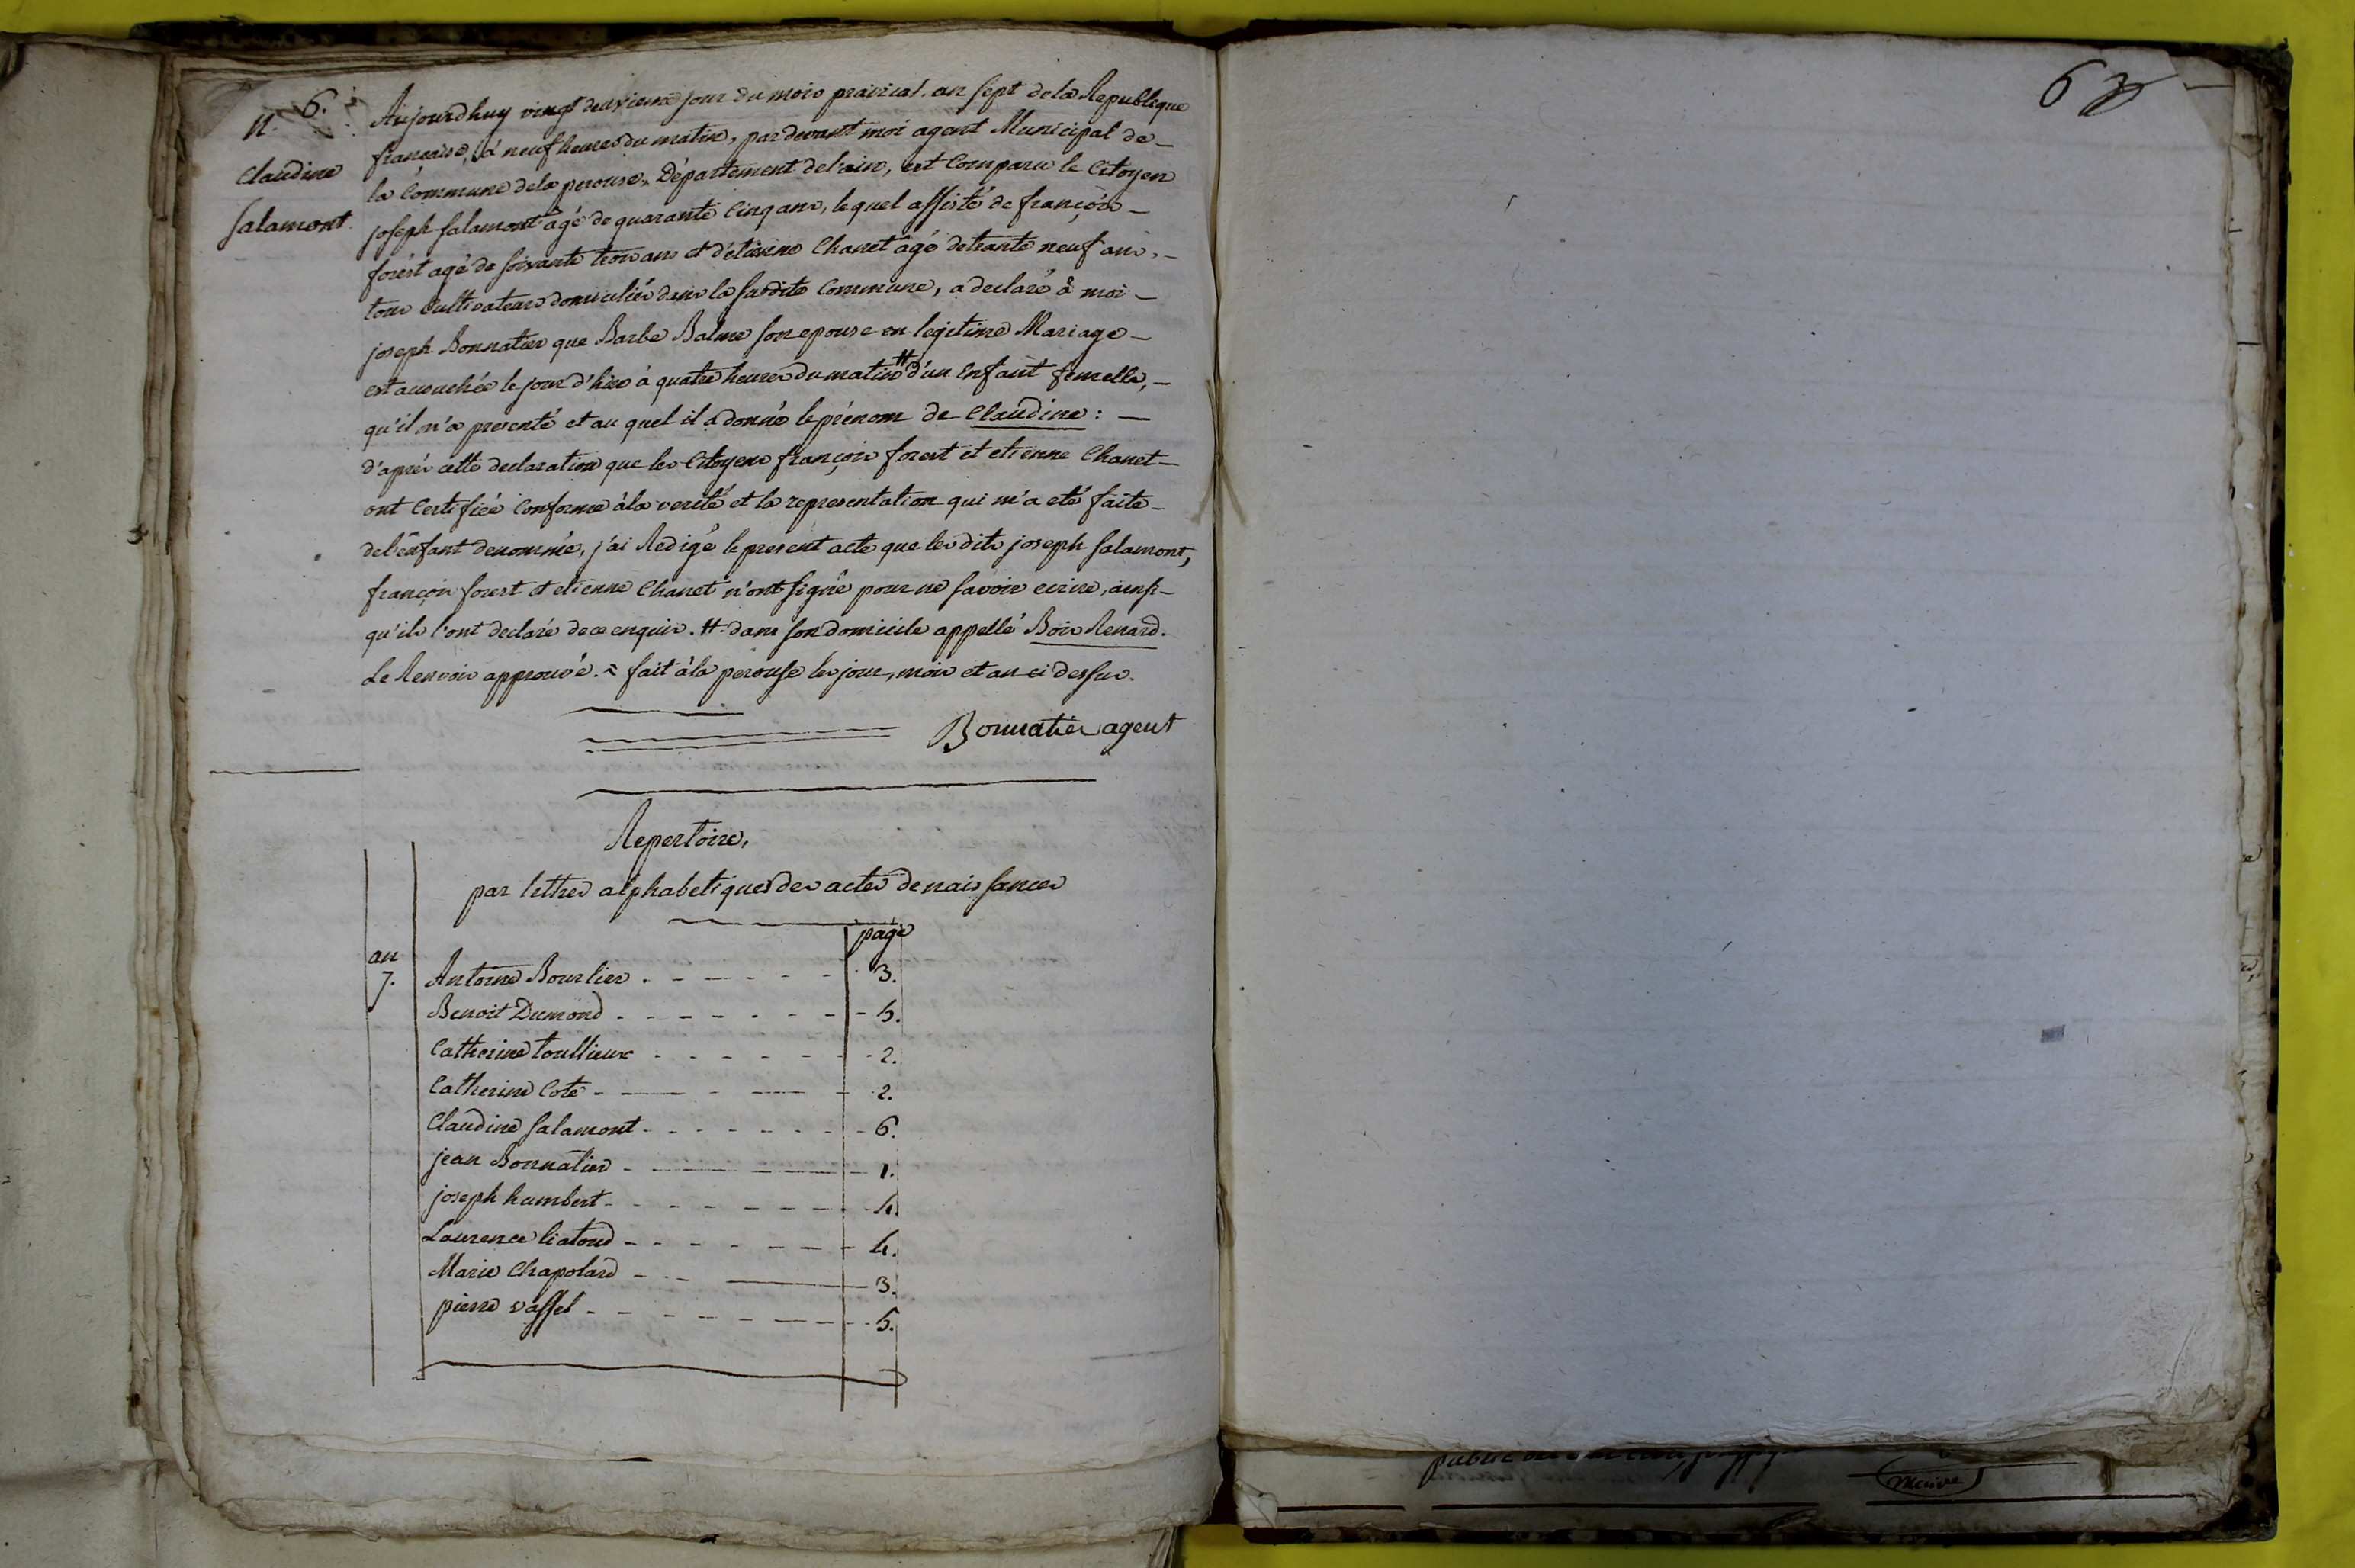 N. 6.
Claudine
Salamont.
Aujourdhuy vingt deuxieme jour du mois prairial. an sept de la Republique
francaise, à neuf heures du matin, par devant moi agent Municipal de
la Commune de la perouse, Département de l'ain, est Comparu le Citoyen
joseph Salamont âgé de quarante Cinq ans, lequel assisté de françois
forest agé de soixante trois ans et d'étienne Chanet âgé de trante neuf ans,
tous Cultivateurs domiciliés dans la susdite Commune, a declaré à moi
joseph Bonnatier que Barbe Balme son epouse en legitime Mariage
est accouchée le jour d'hier à quatre heures du matin # d'un Enfant femelle,
qu'il m'a presenté et au quel il a donné le prénom de Claudine :
d'après cette declaration que les Citoyens françois forest et etienne Chanet
ont Certifiée Conforme à la verité et la representation qui m'a eté faite
de l'enfant denommée, j'ai Redigé le present acte que les dits joseph Salamont,
françois forest et etienne Chanet n'ont signé pour ne savoir ecrire, ainsi
qu'ils l'ont declaré de ce enquis. #. dans son domicile appellé Bois Renard.
Le Renvoir approuvé. = fait à la perouse les jour, mois et an ci dessus.
Bonnatier agent
Repertoire,
par lettres alphabetiques des actes de naissances
page
an
7. Antoine Bourlier 3.
Benoit Dumond 5.
Catherine toullieux 2.
Catherine Cote 2.
Claudine Salamont 6.
jean Bonnatier 1.
joseph humbert 4.
Laurence liatoud 4.
Marie Chapolard 3.
pierre vassel 5.
63
maire